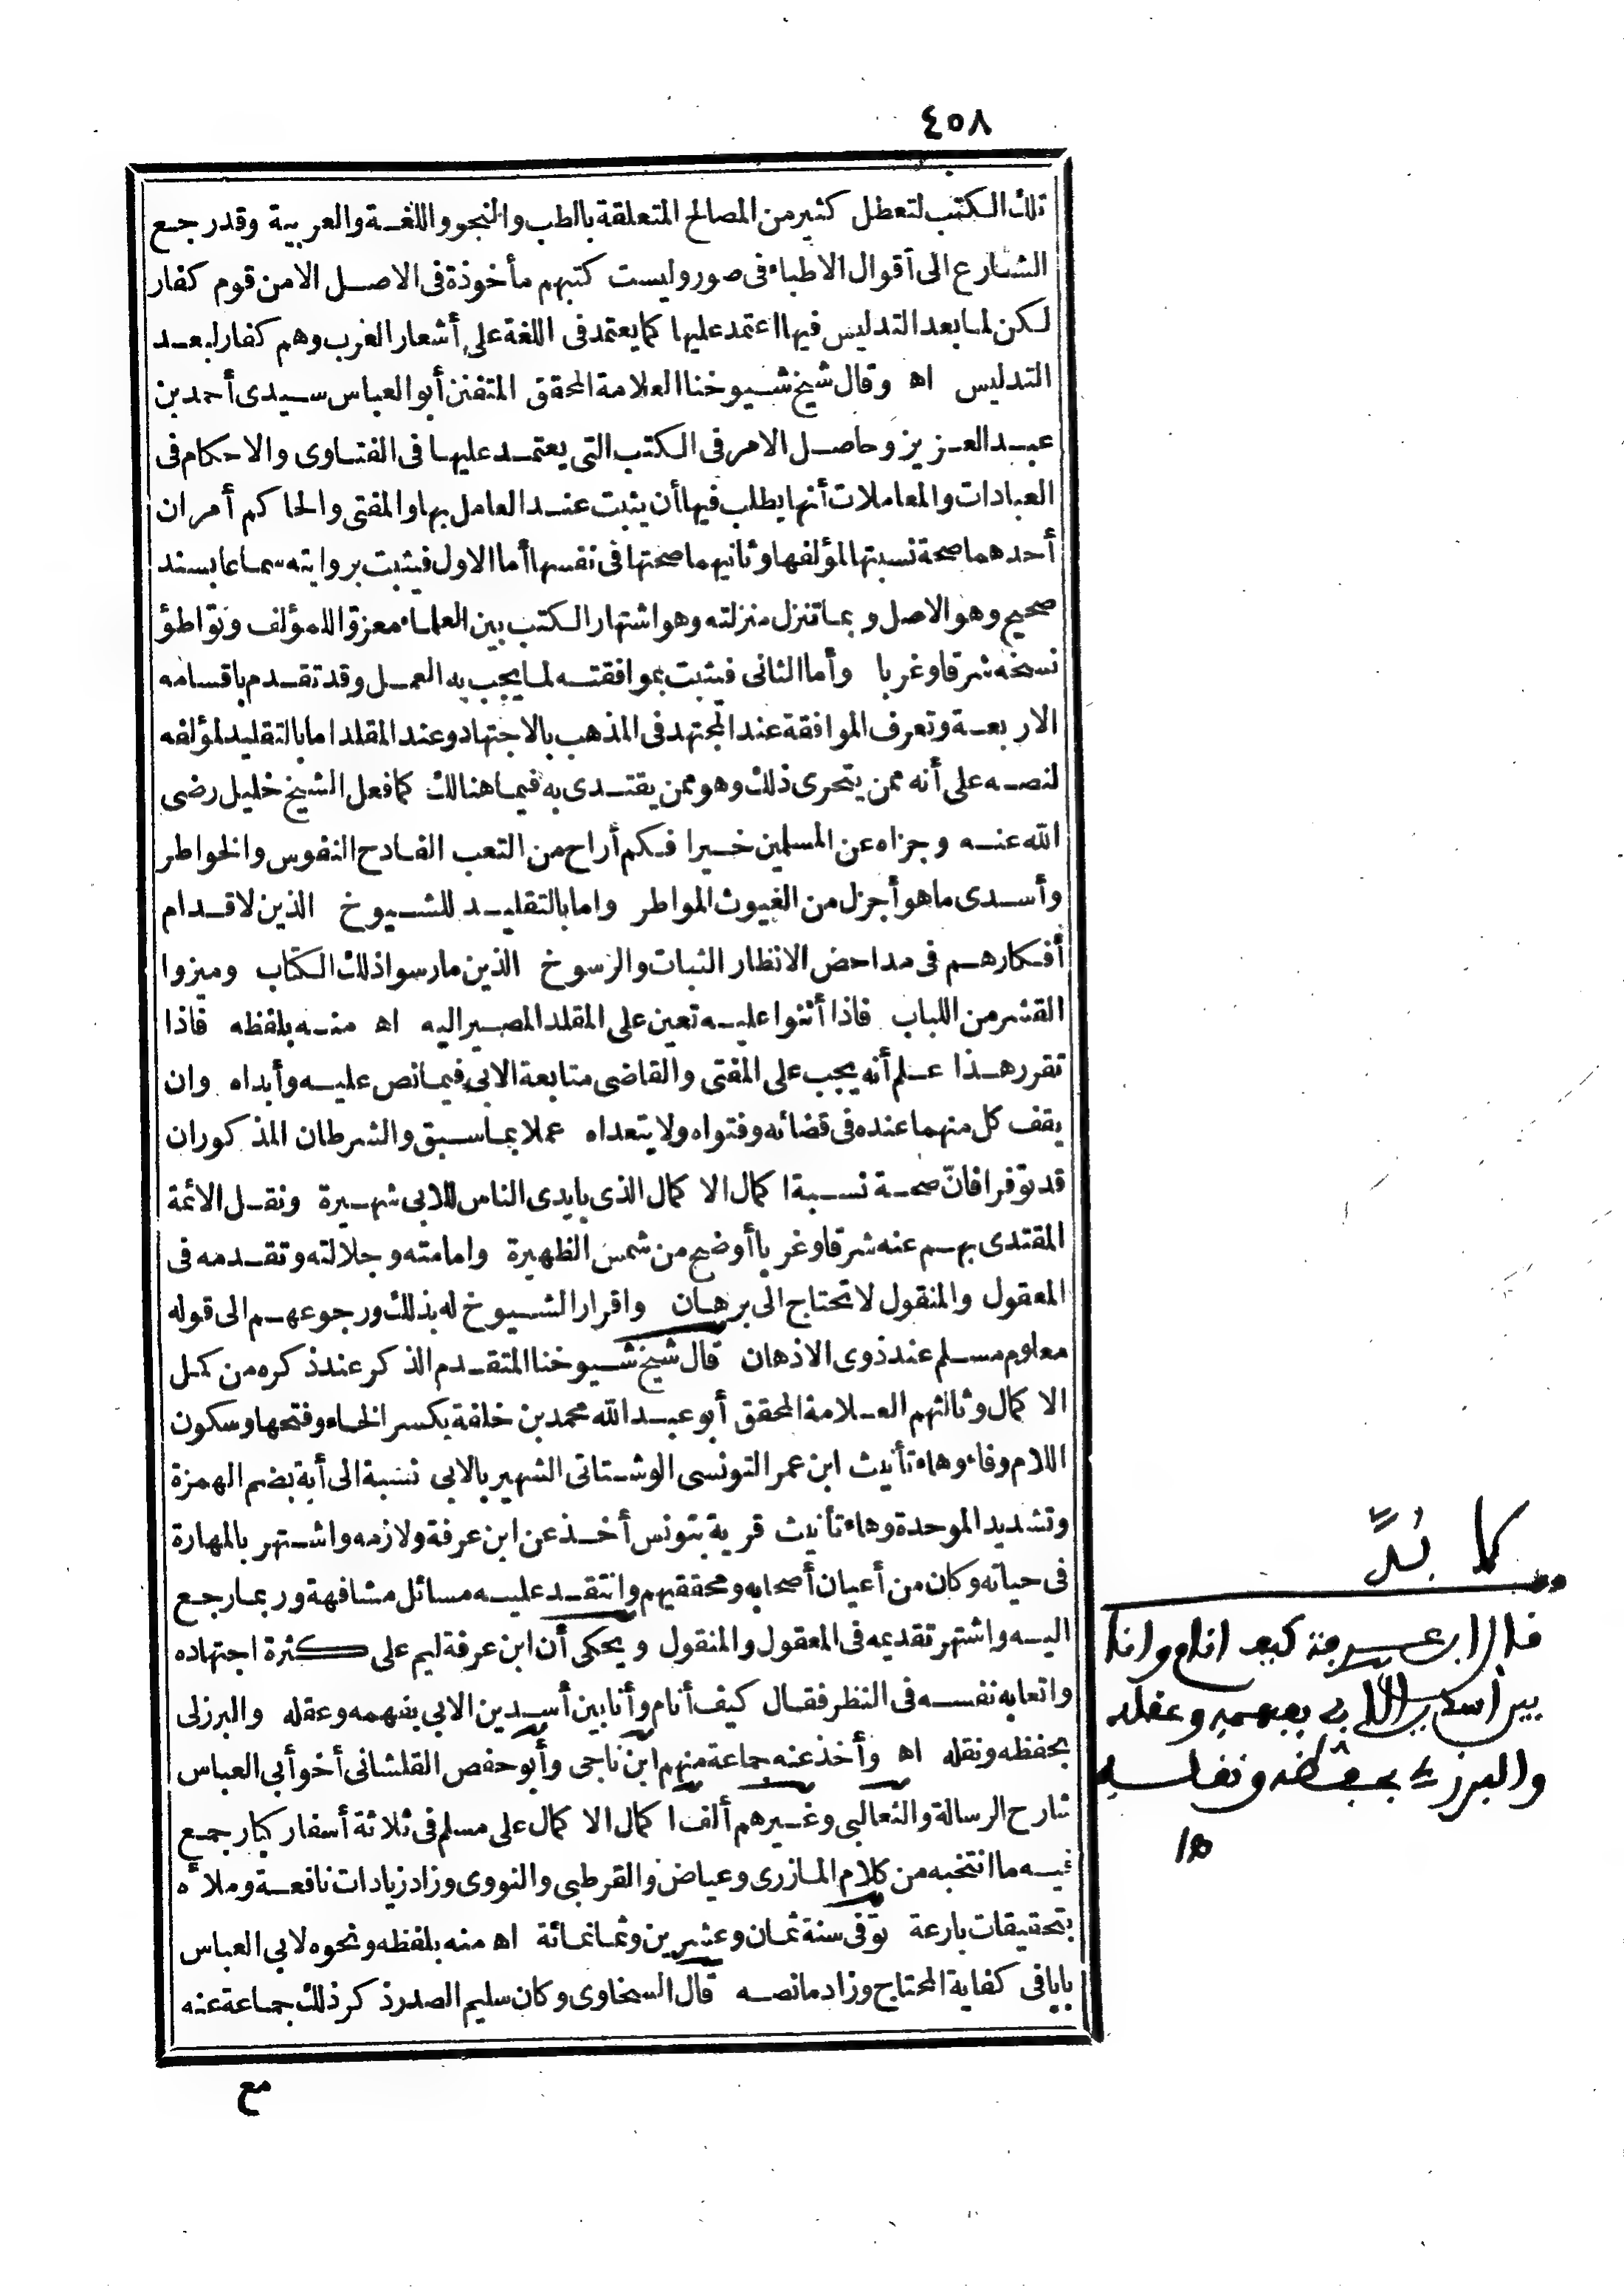 ٤٥٨
تلك الكتب لتعطل كثير من المصالح المتعلقة بالطب والنحو واللغة والعربية وقد رجع
الشارع الى أقوال الاطباء فى صور وليست كتبهم مأخوذة فى الاصل الا من قوم كفار
لكن لما بعد التدليس فيها اعتمد عليها كما يعتمد فى اللغة على أشعار العرب وهم كفار لبعد
التدليس اه وقال شيخ شيوخنا العلامة المحقق المتفنن أبو العباس سيدى أحمد بن
عبد العزيز وحاصل الامر فى الكتب التى يعتمد عليها فى الفتاوى والاحكام فى
العبادات والمعاملات أنها يطلب فيها أن يثبت عند العامل بها والمفتى والحاكم أمران
أحدهما صحة نسبتها لمؤلفها وثانيهما صحتها فى نفسها أما الاول فيثبت بروايته سماعا بسند
صحيح وهو الاصل وبما تنزل منزلته وهو اشتهار الكتب بين العلماء معزوا للمؤلف وتواطؤ
نسخه شرقا وغربا وأما الثانى فيثبت بموافقته لما يجب به العمل وقد تقدم باقسامه
الاربعة وتعرف الموافقة عند المجتهد فى المذهب بالاجتهاد وعند المقلد اما بالتقليد لمؤلفه
لنصه على أنه ممن يتحرى ذلك وهو ممن يقتدى به فيما هنالك كما فعل الشيخ خليل رضى
الله عنه وجزاه عن المسلمين خيرا فكم أراح من التعب الفادح النفوس والخواطر
وأسدى ما هو أجزل من الغيوث المواطر واما بالتقليد للشيوخ الذين لاقدام
أفكارهم فى مداحض الانظار الثبات والرسوخ الذين مارسوا ذلك الكتاب وميزوا
القشر من اللباب فاذا أثنوا عليه تعين على المقلد المصير اليه اه منه بلفظه فاذا
تقرر هذا علم أنه يجب على المفتى والقاضى متابعة الابى فيما نص عليه وأبداه وان
يقف كل منهما عنده فى قضائه وفتواه ولا يتعداه عملا بما سبق والشرطان المذكوران
قد توفرا فان صحة نسبة اكمال الاكمال الذى بايدى الناس للابى شهيرة ونقل الائمة
المقتدى بهم عنه شرقا وغربا أوضح من شمس الظهيرة وامامته وجلالته وتقدمه فى
المعقول والمنقول لا تحتاج الى برهان واقرار الشيوخ له بذلك ورجوعهم الى قوله
معلوم مسلم عند ذوى الاذهان قال شيخ شيوخنا المتقدم الذكر عند ذكره من كمل
الاكمال وثالثهم العلامة المحقق أبو عبد الله محمد بن خلفة بكسر الخاء وفتحها وسكون
اللام وفاء وهاء تأنيث ابن عمر التونسى الوشتاتى الشهير بالابى نسبة الى أبة بضم الهمزة
وتشديد الموحدة وهاء تأنيث قرية بتونس أخذ عن ابن عرفة ولازمه واشتهر بالمهارة
فى حياته وكان من أعيان أصحابه ومحققيهم وانتقد عليه مسائل مشافهة وربما رجع
اليه واشتهر تقديمه فى المعقول والمنقول ويحكى أن ابن عرفة ليم على كثرة اجتهاده
واتعابه نفسه فى النظر فقال كيف أنام وأنا بين أسدين الابى بفهمه وعقله والبرزلى
بحفظه ونقله اه وأخذ عنه جماعة منهم ابن ناجى وأبو حفص القلشانى أخو أبى العباس
شارح الرسالة والثعالبى وغيرهم ألف اكمال الاكمال على مسلم فى ثلاثة أسفار كبار جمع
فيه ما انتخبه من كلام المازرى وعياض والقرطبى والنووى وزاد زيادات نافعة وملأه
بتحقيقات بارعة توفى سنة ثمان وعشرين وثمانمائة اه منه بلفظه ونحوه لابى العباس
بابا فى كفاية المحتاج وزاد ما نصه قال السخاوى وكان سليم الصدر ذكر ذلك جماعة عنه
مع
قال ابن عرفة كيف انام وانا
بين اسدين الابي بفهمه وعقله
والبرزلي بحفظه ونقله
اه